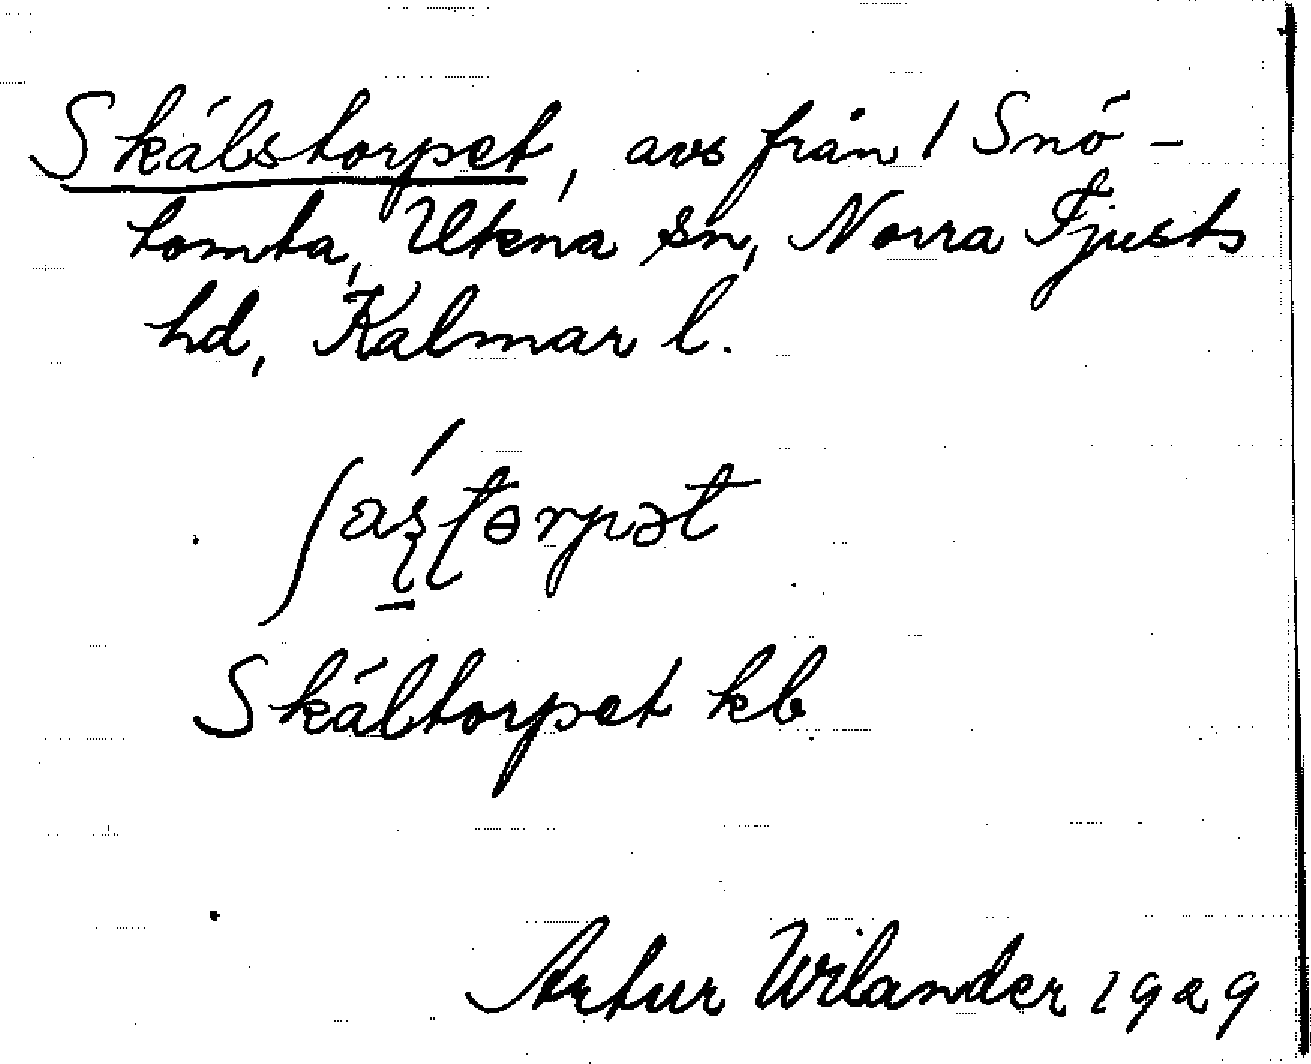 Skälstorpet, avs från 1 Snö-
tomta, Ukna sn, Norra Tjusts
hd, Kalmar l.
Skältorpet kb
Artur Wilander 1929